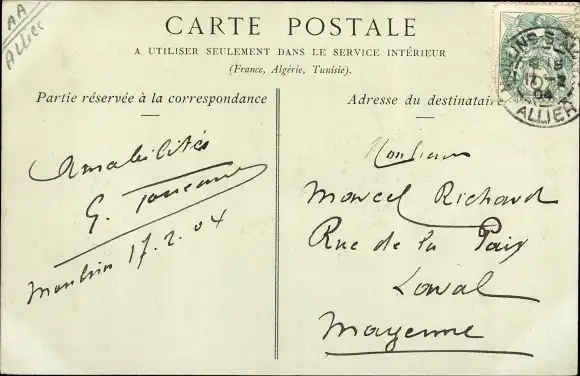 AA
Allier
CARTE POSTALE
A UTILISER SEULEMENT DANS LE SERVICE INTÉRIEUR
(France, Algérie, Tunisie).
Partie réservée à la correspondance
Adresse du destinataire
Amabilités
G.
Moulins 17.2.04
Monsieur
Marcel Richard
Rue de la Paix
Laval
Mayenne
MOULINS S ALLIER
17-2
04
ALLIER